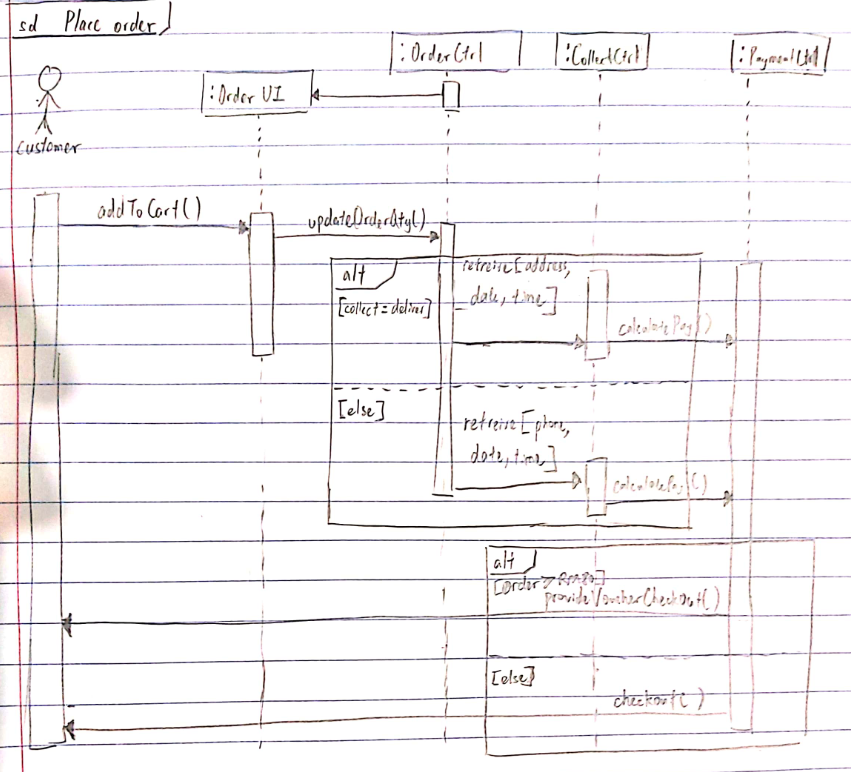 sd Place order
:OrderCtrl
:CollectCtrl
:PaymentCtrl
:Order UI
Customer
addToCart()
updateOrderQty()
alt
retreive[address,
date, time]
[collect = deliver]
calculatePay()
[else]
retreive[phone,
date, time]
calculatePay()
alt
[Order >
provideVoucherCheckout()
[else]
checkout()